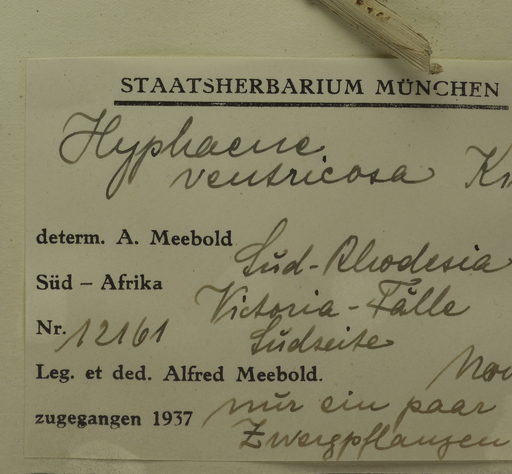 STAATSHERBARIUM MÜNCHEN
Hyphaene
ventricosa
determ. A. Meebold
Süd-Rhodesia
Süd – Afrika
Victoria-Fälle
Nr. 12161
Südseite
Leg. et ded. Alfred Meebold.
zugegangen 1937
nur ein paar
Zwergpflanzen